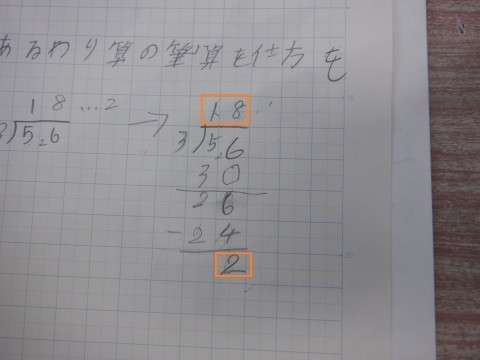 あるわり算の筆算を仕方を
18…2
3)5.6
→
18…
3)5.6
30
26
-24
2